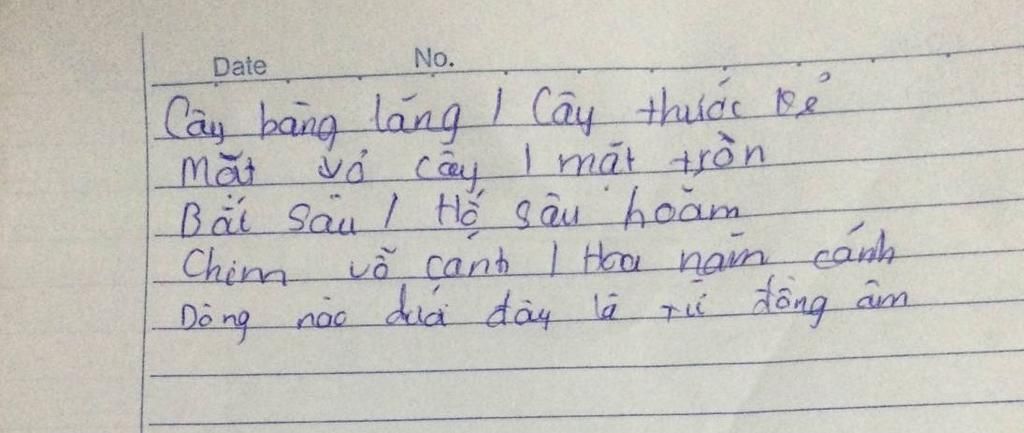 Date No.
Cây bằng lăng / Cây thước kẻ
Mắt vỏ cây / mắt tròn
Bắt sâu / Hố sâu hoắm
Chim vỗ cánh / Hoa năm cánh
Dòng nào dưới đây là từ đồng âm